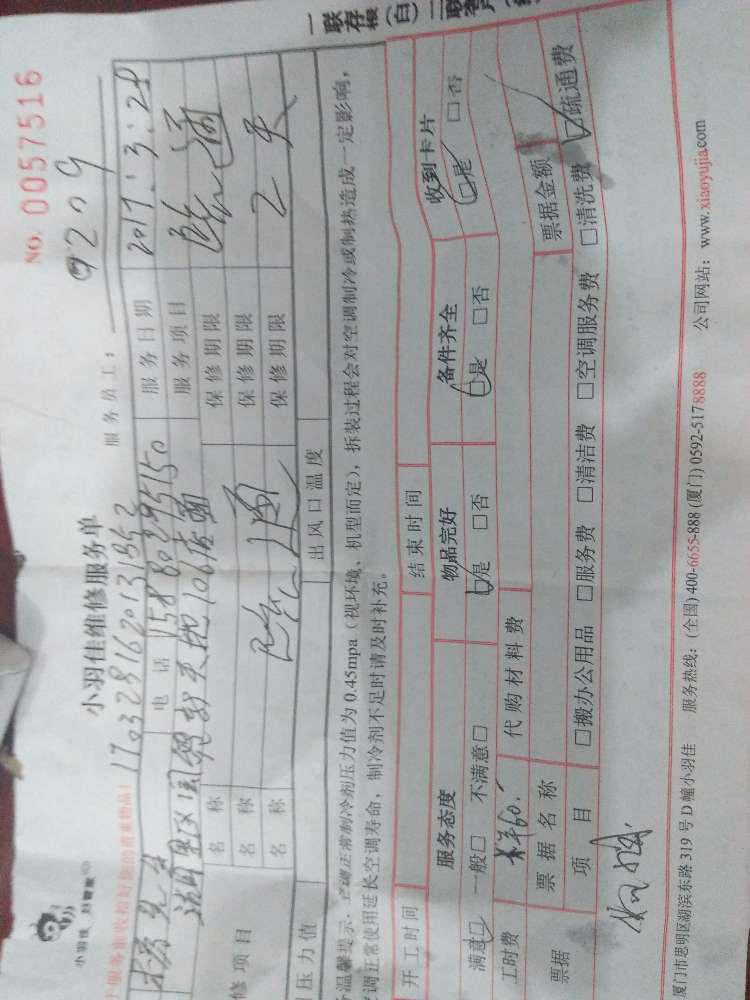 一联存根(白)二联客户
小羽佳
小羽佳维修服务单
NO. 0057516
服务员工: 9209
服务前请收拾好您的贵重物品!
1703281620131BS2
先生 电话 15880295150 服务日期 2017.3.28
服务项目 疏通
修项目 名称 保修期限
名称 疏通 保修期限
名称 保修期限 2天
压力值 出风口温度
温馨提示:空调正常制冷剂压力值为0.45mpa(视环境、机型而定),拆装过程会对空调制冷或制热造成一定影响,
空调正常使用延长空调寿命,制冷剂不足时请及时补充。
开工时间 结束时间
服务态度 物品完好 备件齐全 收到卡片
满意□ 一般□ 不满意□ □是 □否 □是 □否 □是 □否
工时费 ¥60. 代购材料费
票据 票据名称 票据金额
项目 □搬办公用品 □服务费 □清洁费 □空调服务费 □清洗费 ☑疏通费
厦门市思明区湖滨东路319号D幢小羽佳 服务热线:(全国)400-6655-888(厦门)0592-5178888 公司网站:www.xiaoyujia.com